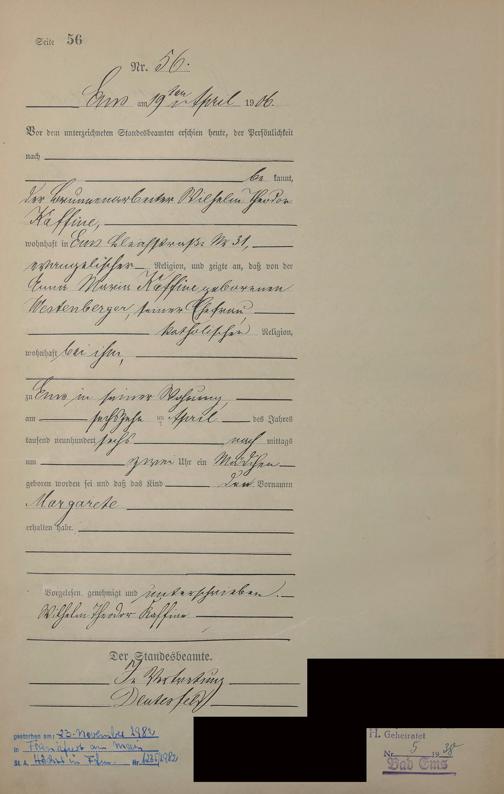 Seite 56
Nr. 56.
Ems am 19ten April 1906.
Vor dem unterzeichneten Standesbeamten erschien heute, der Persönlichkeit
nach
be kannt,
der Brunnenarbeiter Wilhelm Theodor
Kaffine,
wohnhaft in Ems, Bleichstraße Nr 31,
evangelischer Religion, und zeigte an, daß von der
Anna Maria Kaffine geborenen
Westenberger, seiner Ehefrau
katholischer Religion,
wohnhaft bei ihm,
zu Ems in seiner Wohnung
am sechszehn ten April des Jahres
tausend neunhundert sechs nach mittags
um zwei Uhr ein Mädchen
geboren worden sei und daß das Kind den Vornamen
Margarete
erhalten habe.
Vorgelesen, genehmigt und unterschrieben.
Wilhelm Theodor Kaffine
Der Standesbeamte.
In Vertretung
gestorben am: 23. November 1982
in Frankfurt am Main
St. A. Höchst in Ffm. Nr.
H. Geheiratet
Nr. 5 1938
Bad Ems